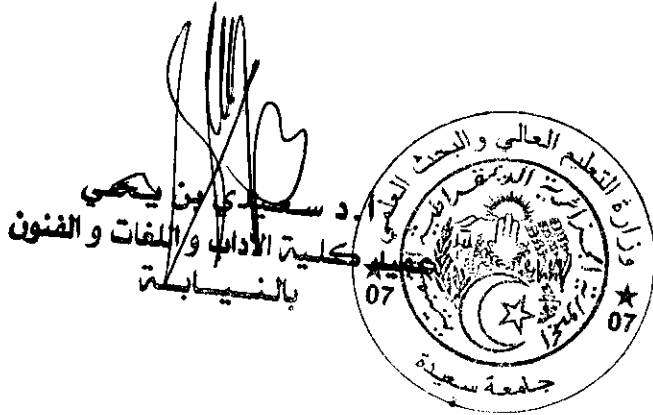 أ.د سعيدي بن يحي
عميد كلية الآداب و اللغات و الفنون
بالنيابة
وزارة التعليم العالي و البحث العلمي
الجمهورية الجزائرية الديمقراطية الشعبية
07
07
جامعة سعيدة